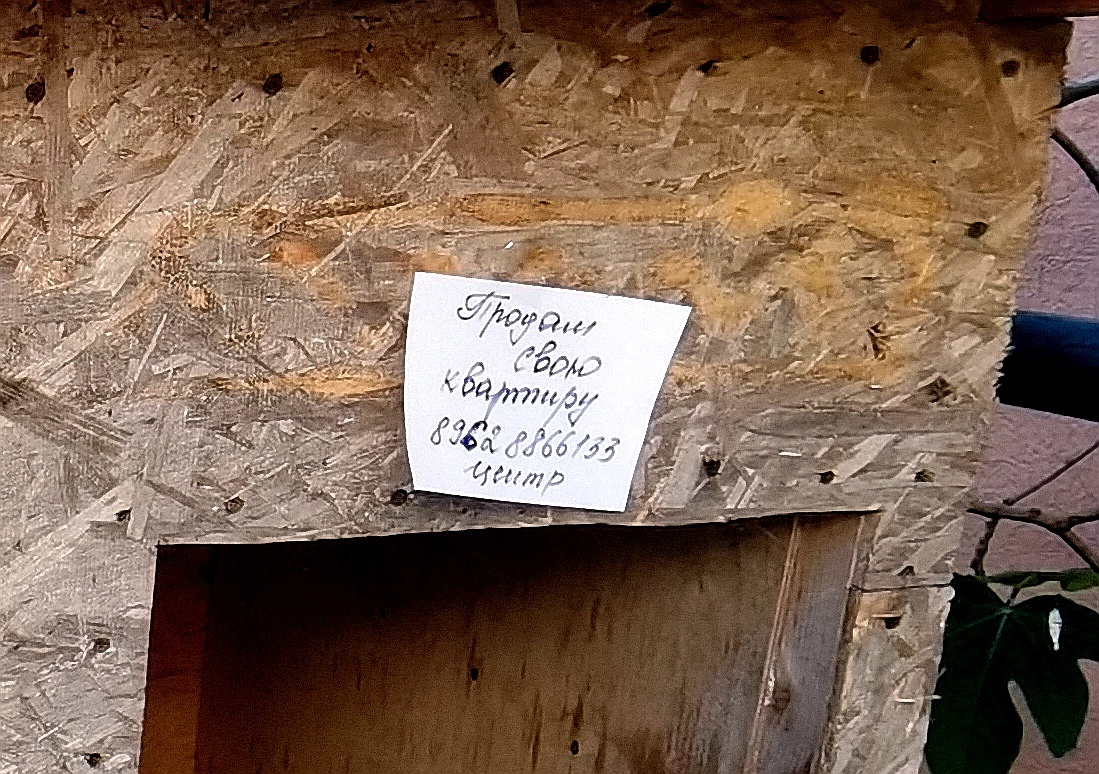 Продам
свою
квартиру
8962 8866133
центр